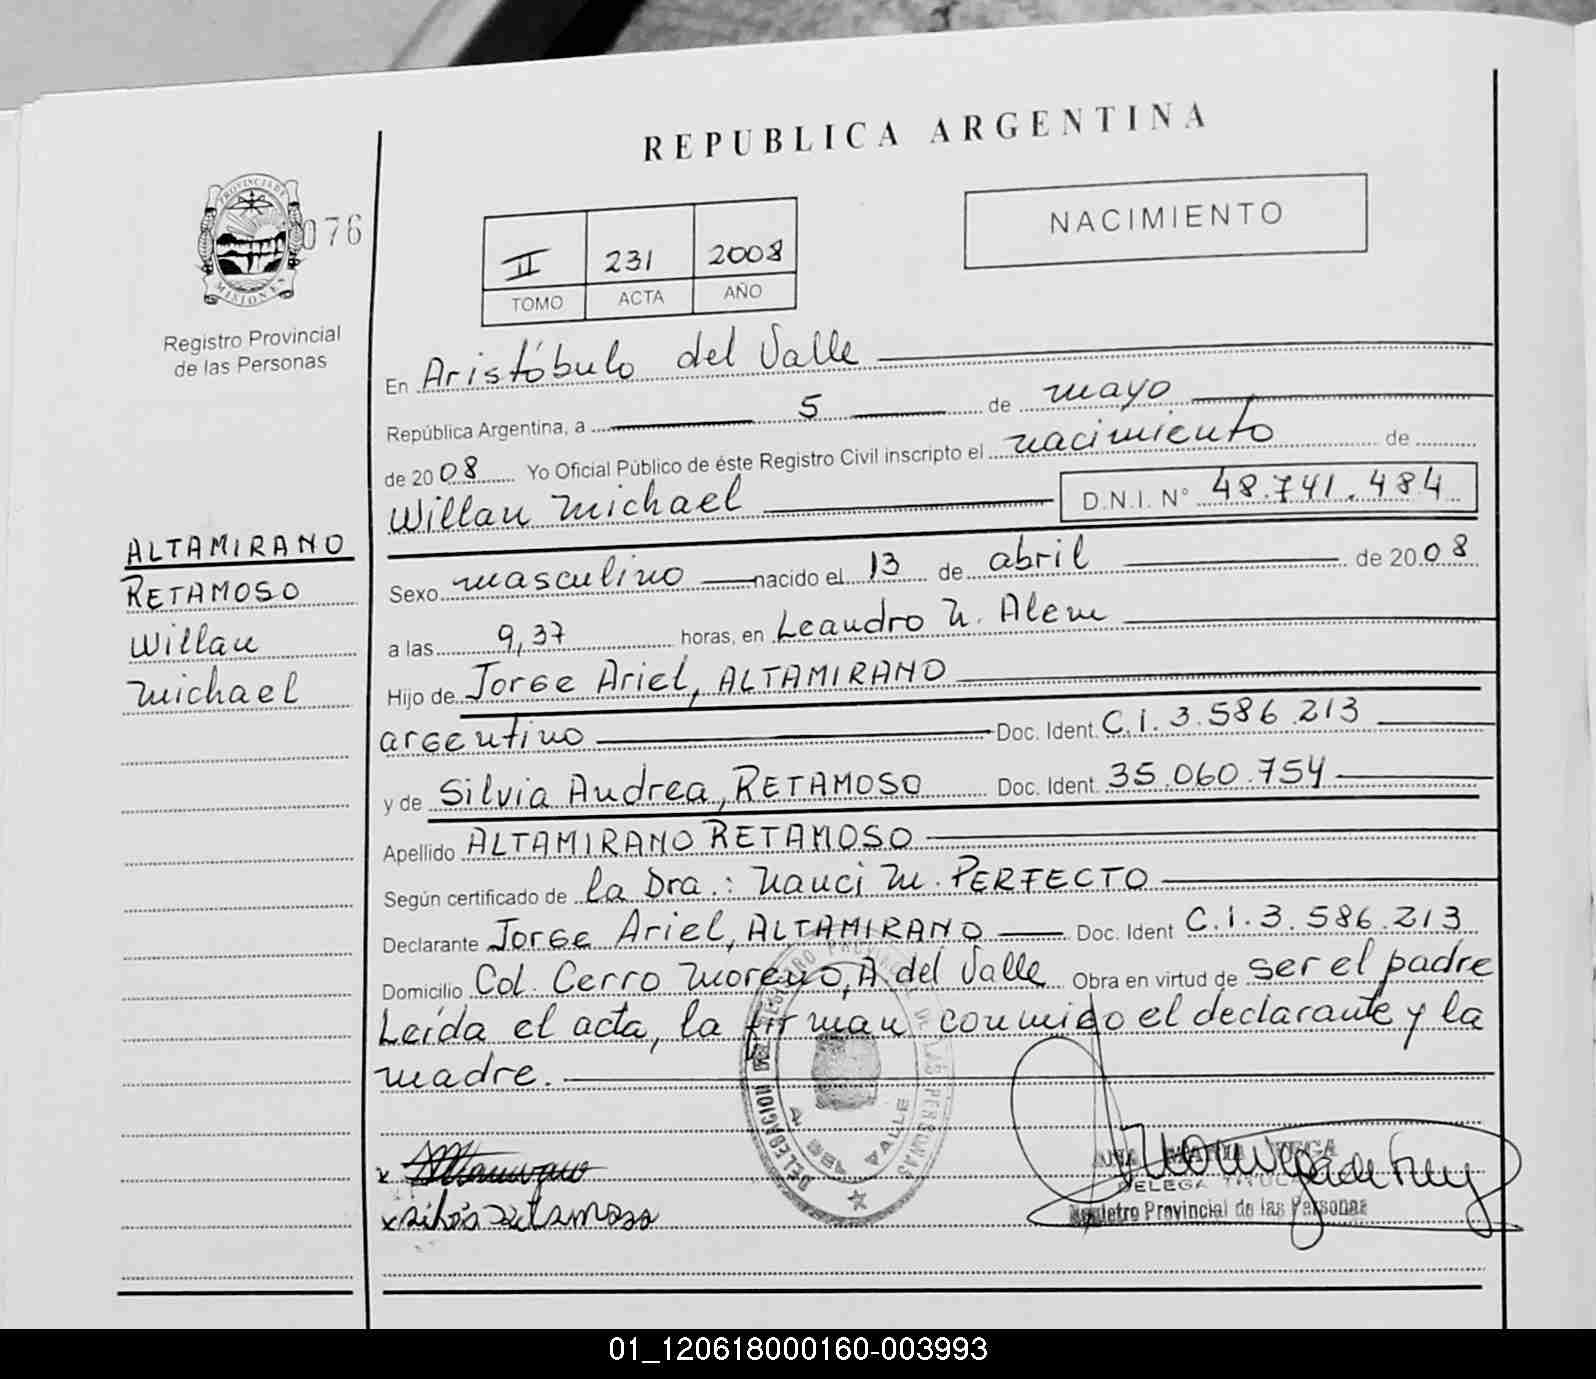 REPUBLICA ARGENTINA
PROVINCIA DE
MISIONES
076
Registro Provincial
de las Personas
II 231 2008
TOMO ACTA AÑO
NACIMIENTO
En Aristóbulo del Valle
República Argentina, a 5 de mayo
de 2008 Yo Oficial Público de éste Registro Civil inscripto el nacimiento de
Willan Michael D.N.I. N° 48.741.484
ALTAMIRANO
RETAMOSO
Willan
Michael
Sexo masculino nacido el 13 de abril de 2008
a las 9,37 horas, en Leandro N. Alem
Hijo de Jorge Ariel, ALTAMIRANO
argentino Doc. Ident. C.i. 3.586.213
y de Silvia Andrea, RETAMOSO Doc. Ident. 35.060.754
Apellido ALTAMIRANO RETAMOSO
Según certificado de la Dra.: Nanci M. PERFECTO
Declarante Jorge Ariel, ALTAMIRANO Doc. Ident C.i. 3.586.213
Domicilio Col. Cerro Moreno, A del Valle Obra en virtud de ser el padre
Leída el acta, la firman conmigo el declarante y la
madre.
DELEGACION
VALLE
DE LAS PERSONAS
x
x Retamoso
VEGA
DELEGA TITULA
Registro Provincial de las Personas
01_120618000160-003993